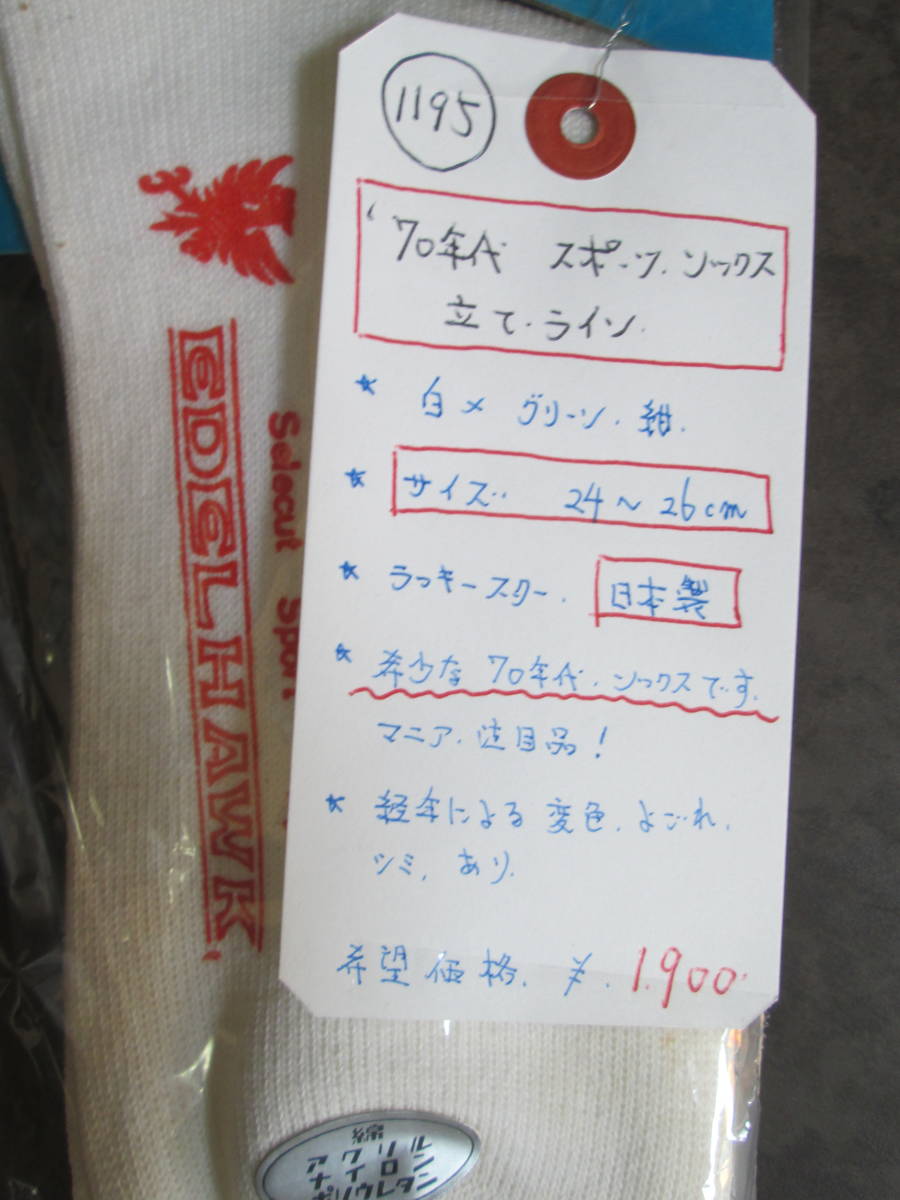 1195
'70年代 スポーツ.ソックス
立て.ライン.
★ 白×グリーン.紺.
★ サイズ.. 24~26cm
★ ラッキースター. 日本製
★ 希少な70年代.ソックスです.
マニア.注目品!
★ 経年による変色.よごれ.
シミ.あり.
希望価格.¥.1.900.
EDELHAWK
Selecut Sport
綿
アクリル
ナイロン
ポリウレタン